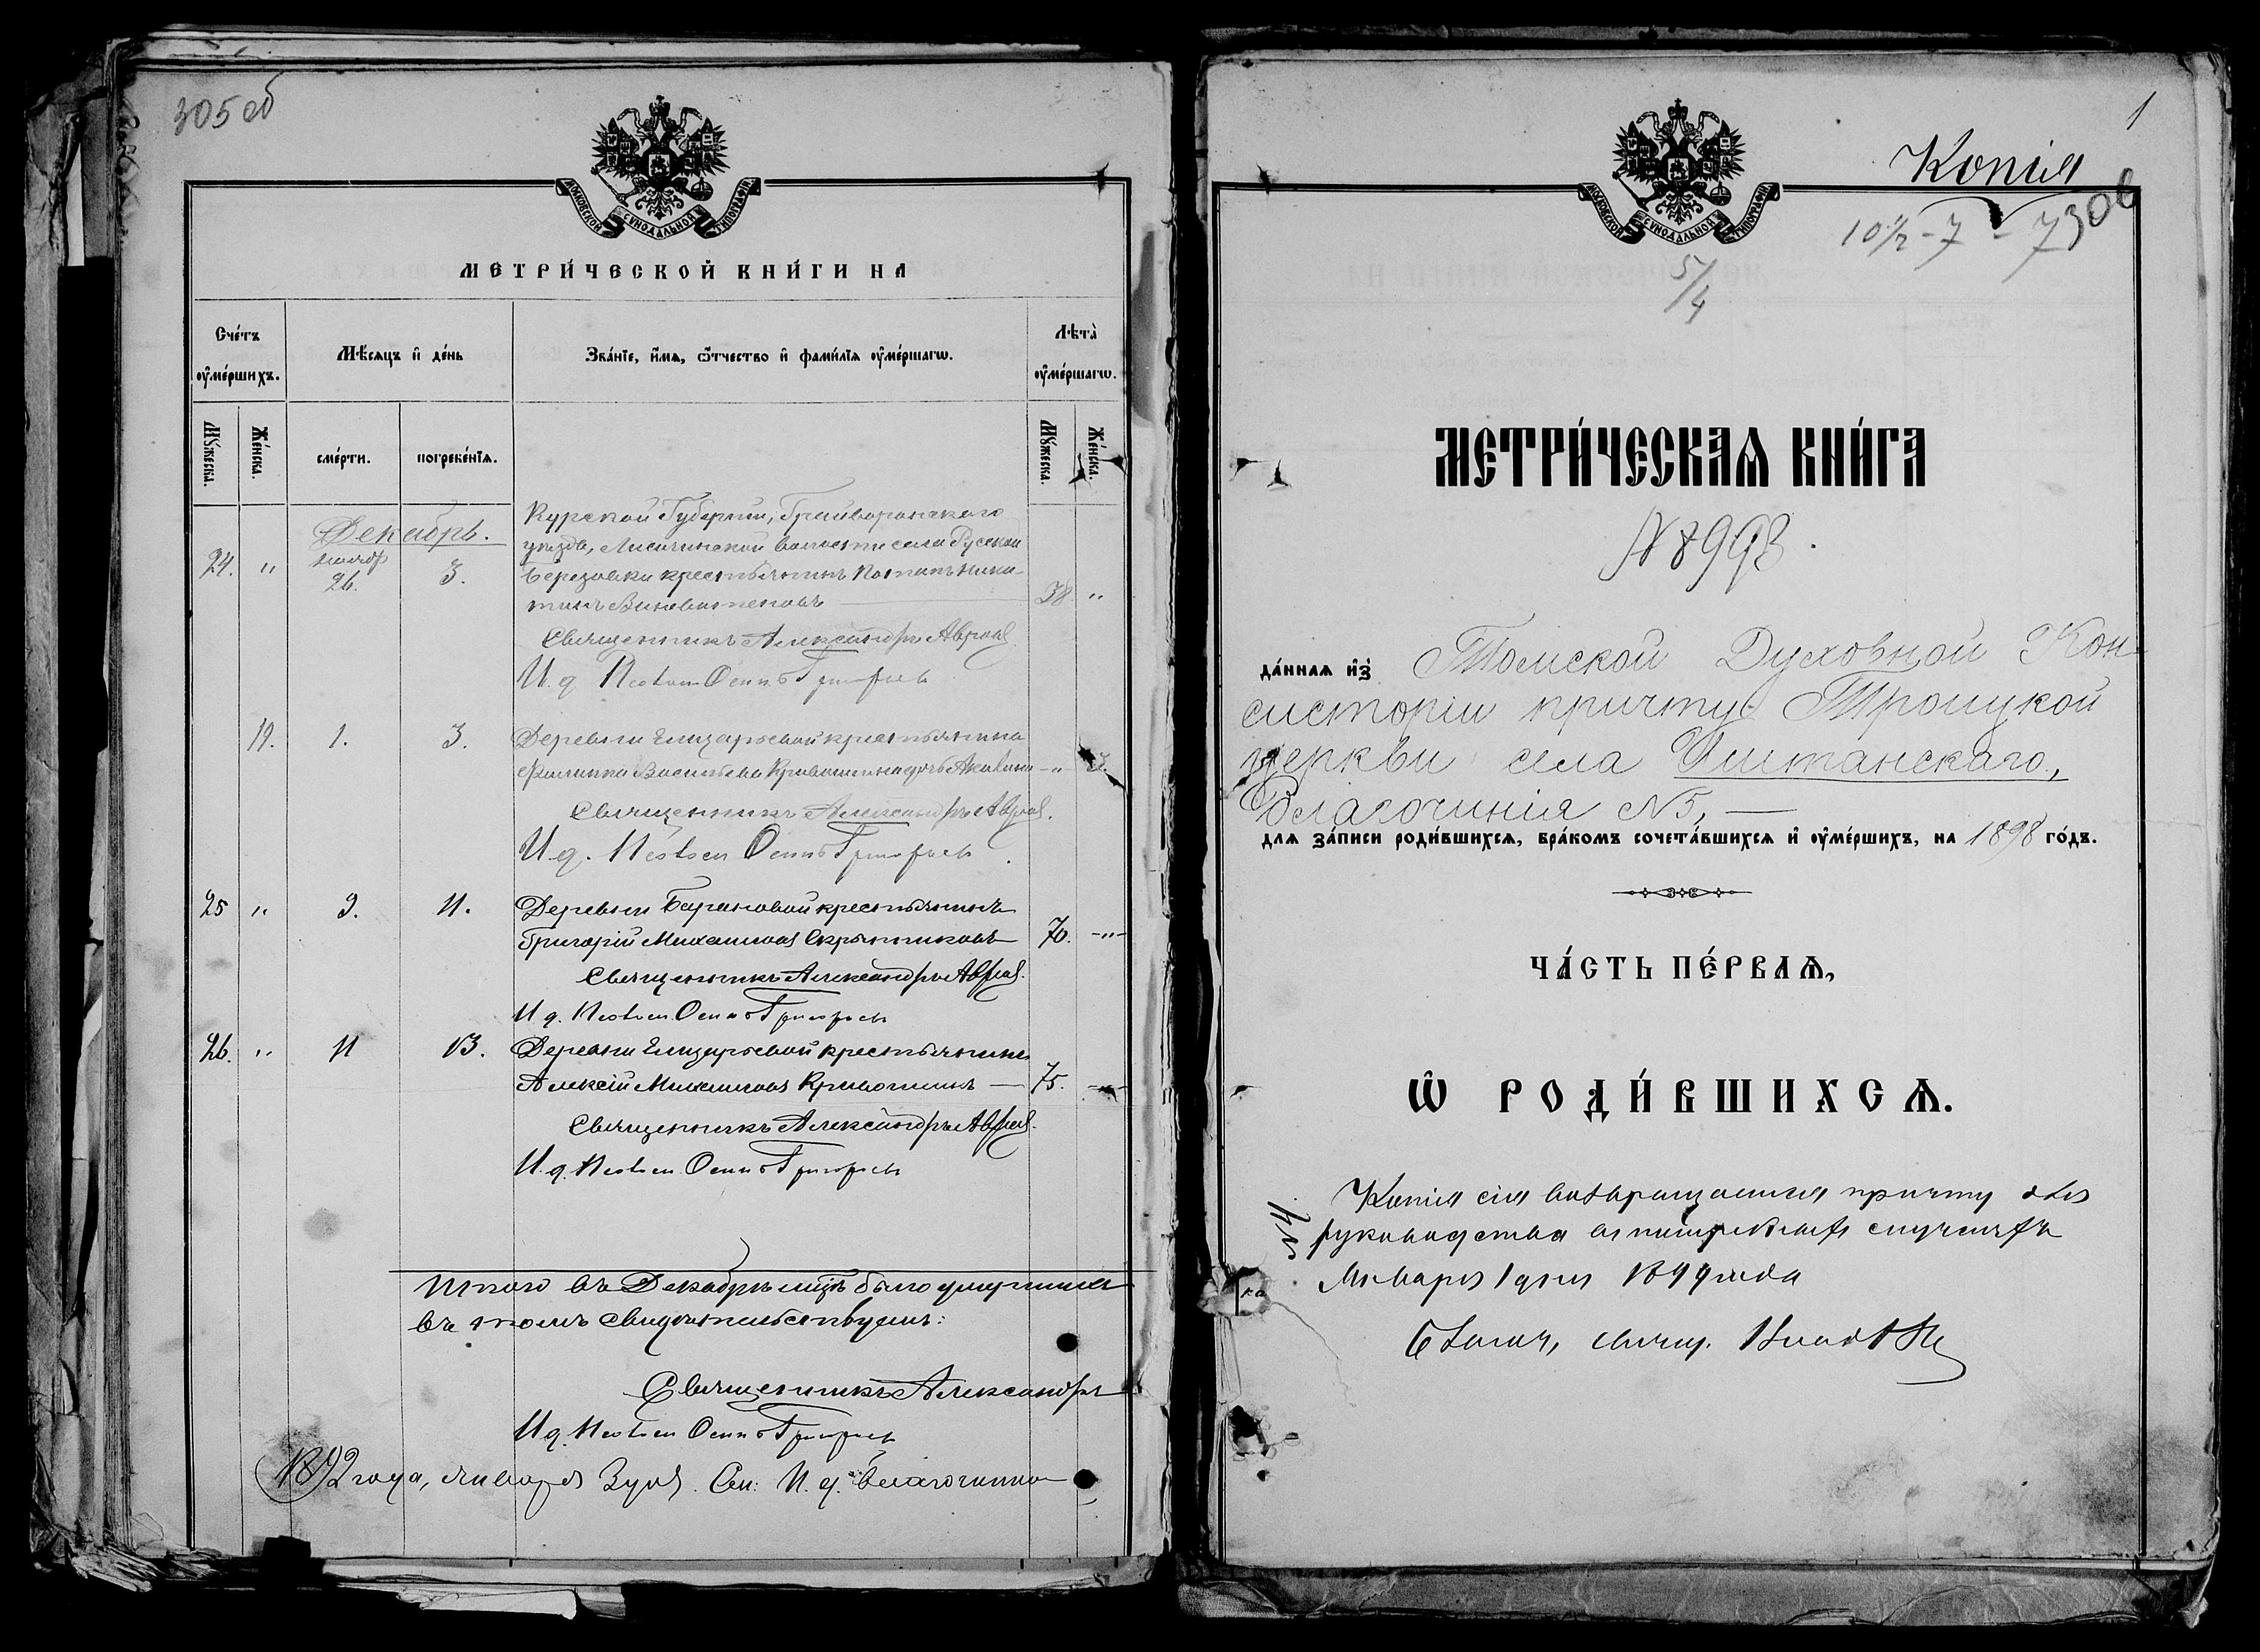 305 об
МОСКОВСКОЙ СѴНОДАЛЬНОЙ ТИПОГРАФІИ
МЕТРИ́ЧЕСКОЙ КНИ́ГИ НА
Сче́тъ оу҆ме́ршихъ.
Мѣ́сяцъ и҆ де́нь
Зва́нїе, и҆́мя, ѻ҆́тчество и҆ фами́лїя оу҆ме́ршагѡ.
Лѣта̀ оу҆ме́ршагѡ.
Мꙋ́жеска.
Же́нска.
сме́рти.
погребе́нїя.
Мꙋ́жеска.
Же́нска.
Декабрь.
Курской Губерніи, Грайворонскаго
уѣзда, Лисичинской волости села Русской
24. " 26. 3. Березовки крестьянинъ Потапъ Ники-
тинъ 38 "
Священникъ Александръ
И. д. Псаломщ Осипъ Григорьев
19. 1. 3. Деревни Елизарьевой крестьянина
Филиппа Васильева Кривошеина дочь - " 3.
Священникъ Александръ
И. д. Псаломщ Осипъ Григорьев
25 " 9. 11. Деревни Барановой крестьянинъ
Григорій Михаиловъ Скрынниковъ 70. - " -
Священникъ Александръ
И. д. Псаломщ Осипъ Григорьев
26. " 11 13. Деревни Елизарьевой крестьянинъ
Алексій Михаиловъ Кривошеинъ — 75.
Священникъ Александръ
И. д. Псаломщ Осипъ Григорьев
Итого въ Декабрѣ было умершихъ
въ томъ свидѣтельствуемъ:
Священникъ Александръ
И. д. Псаломщ Осипъ Григорьев
1892 года, января 3 дня. И. д. благочинна
1
Копія
МОСКОВСКОЙ СѴНОДАЛЬНОЙ ТИПОГРАФІИ
10½ - 7 - 730
5/4
МЕТРИ́ЧЕСКАѦ КНИ́ГА
№ 8998.
да́нная и҆з̾ Томской Духовной Кон-
систоріи причту Троицкой
церкви села Иштанскаго,
благочинія №5, —
для за́писи роди́вшихся, бра́комъ сочета́вшихся и҆ оу҆ме́ршихъ, на 1898 го́дъ.
ЧА́СТЬ ПЕ́РВАѦ,
Ѡ҆ РОДИ́ВШИХСѦ.
Копія сія возвращается причту для
руководства въ потребныхъ случаяхъ
Января 1 дня 1899 года